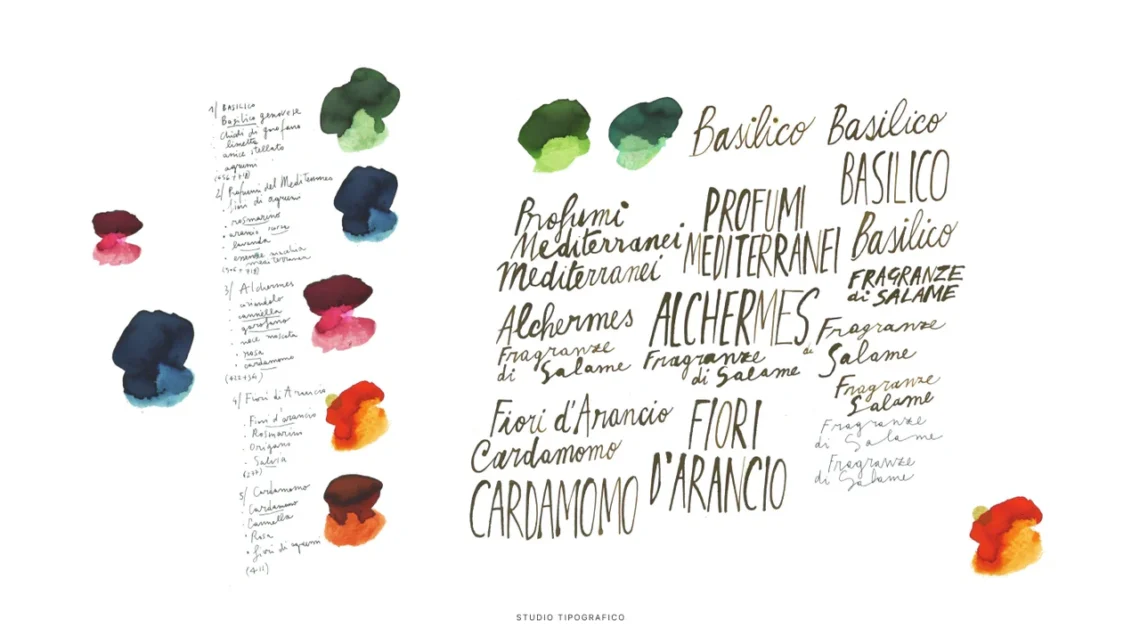 1/ BASILICO
Basilico genovese
chiodi di garofano
limetta
anice stellato
agrumi
2/ Profumi del Mediterraneo
• fiori di agrumi
• rosmarino
• arancio rosa
• lavanda
• essenze macchia
mediterranea
3/ Alchermes
coriandolo
• cannella
• garofano
• noce moscata
• rosa
• cardamomo
4/ Fiori di Arancio
Fiori d'arancio
• Rosmarini
• Origano
• Salvia
(277)
5/ Cardamomo
• Cardamomo
• Cannella
• Rosa
• fiori di agrumi
(411)
Basilico Basilico
BASILICO
Basilico
Profumi
Mediterranei
Mediterranei
PROFUMI
MEDITERRANEI
FRAGRANZE
di SALAME
Alchermes
ALCHERMES
Fragranze
di Salame
Fragranze
di Salame
Fragranze
di Salame
Fragranze
Salame
Fiori d'Arancio
Cardamomo
CARDAMOMO
FIORI
D'ARANCIO
Fragranze
di Salame
Fragranze
di Salame
STUDIO TIPOGRAFICO